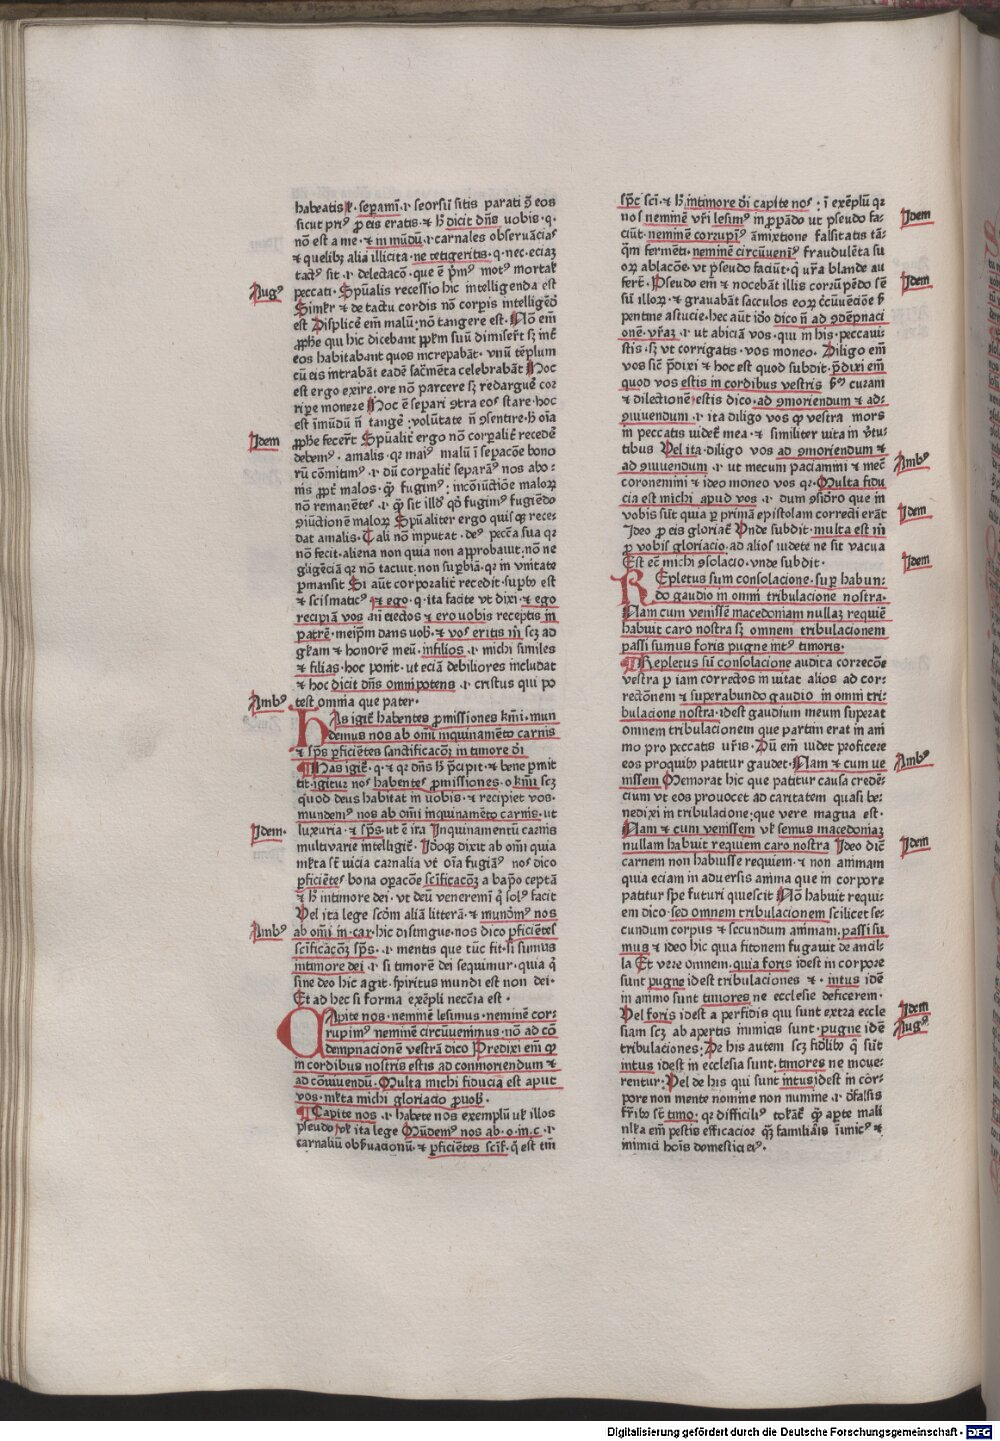 habeatis ł· sepamī·ı· seorsū sitis parati ꝙ eos
sicut priꝰ ꝓ eis eratis· ⁊ h̄ dicit dn̄s vobis· q·
nō est a me· ⁊ in mūdū·ı·carnales obseruācias
⁊ quelibꝫ alia illicita· ne tetigeritis· q· nec eciaꝫ
tactꝰ sit ·ı· delectacō· que ē pͥmꝰ motꝰ mortal
Augꝰ
peccati· Spūalis recessio hic intelligenda est
⁊ de tactu cordis nō corpis intelligēdo
est Displicē em̄ malū·nō tangere est· Nō em̄
ꝓphe qui hic dicebant suū
eos habitabant quos increpabāt· vnū tēplum
cū eis intrabāt eadē sac̄menta celebrabāt Hoc
est ergo exire·ore nō parcere sꝫ redarguē cor
ripe monere Hoc ē separi ꝯtra eos stare·hoc
est īmūdū n̄ tangē·volūtate n̄ ꝯsentire·h̄ oīa
Idem
ꝓphe fecer̄t Spūalit̄ ergo nō corpalit̄ recedē
debemꝰ· amalis· qꝛ maiꝰ malū ī sepacōe bono
rū cōmittimꝰ ·ı· dū corpalit̄ separaꝰ nos abo·
nis ꝓpt̄ malos· ꝙ fugimꝰ; incōiūctiōe maloꝝ
nō remanētes· ·ı· ꝙ sit illoꝰ qd̄ fugimꝰ fugiēdo
ꝯiūctionē maloꝝ Spūaliter ergo quisqꝫ rece·
dat amalis· Tali nō īputat· deꝰ pecc̄a sua qꝛ
nō fecit·aliena non quia non approbauit·nō ne
gligēciā qꝛ nō tacuit·non suꝑbiā·qꝛ in vnitate
ꝑmansit Si aūt corporalit̄ recedit·supbꝰ est
⁊ scismaticꝰ ⁊ ego· q·ita facite vt dixi·⁊ ego
recipiā vos·ın electos ⁊ ero uobis receptis in
patrē·meip̄m dans uob̄·⁊ vos eritis m̄ scꝫ ad
gl̄am ⁊ honorē meū·infilios ·ı· michi similes
⁊ filias·hoc ponit· ut eciā debiliores includat
⁊ hoc dicit dn̄s omnipotens ·ı· cristus qui po
Ambꝰ
test omnia que pater·
HAs igit̄ habentes ꝓmissiones km̄i·mun
demus nos ab om̄i inquinamēto carnis
⁊ sp̄s ꝑficiētes sanctificacōꝫ in timore dī
Has igit̄· q· ⁊ qꝛ dn̄s h̄ p̄cipit· ⁊ bene ꝓmit
tit·igitur nos habentes ꝓmissiones· o km̄i scꝫ
quod deus habitat in uobis· ⁊ recipiet vos·
mundemꝰ nos ab om̄i inquinamēto carnis· ut
Idem·
luxuria· ⁊ sp̄s· ut ē ira Inquinamentū carnis
multiuarie intelligit̄· Idoqꝫ dixit ab om̄i quia
ml̄ta st̄ vicia carnalia vt oīa fugiāꝰ nos dico
ꝑficiētes bona oꝑacōe sc̄ificacōꝫ a bapo ceptā
⁊ h̄ intimore dei· vt deū veneremī ꝙ solꝰ facit
Vel ita lege sc̄dm aliā litterā· ⁊ mundem̄ꝰ nos
Ambꝰ
ab om̄i in·car·hic distingue·nos dico ꝑficiētes
sc̄ificacōꝫ sp̄s· ·ı· mentis que tūc fit·si sumus
intimore dei ·ı· si timorē dei sequimur·quia ꝙ
sine deo hic agit·spiritus mundi est non dei·
Et ad hec si forma exēpli nec̄cia est·
CApite nos·neminē lesimus·neminē cor·
rupimꝰ neminē circūuenimus·nō ad cō
dempnacionē vestrā dico Predixi em̄ ꝙ
in cordibus nostris estis ad conmoriendum ⁊
ad cōuiuendū·Multa michi fiducia est aput
vos·ml̄ta michi gloriacio ꝓuob̄·
Capite nos ·ı· habete nos exemplū vł illos
pseudo vł ita lege Mūdemꝰ nos ab·o·in·c·ı·
carnaliū obs̄uacionū· ⁊ ꝑficiētes sc̄if·ꝙ est tm̄
sp̄c sci·⁊ h̄ intimore dī capite nos; ī exēplū qꝛ
Idem
nos neminē vr̄i lesimꝰ ut pseudo fa·
ciūt·neminē corrupiꝰ āmixtione falsitatis tā·
qm̄ fermēti·neminē circūueniꝰ fraudulēta su
oꝝ ablacōe·vt pseudo faciūt·ꝙ vr̄a blande au
Idem
fert̄·Pseudo em̄ ⁊ nocebāt illis corrūpēdo sē
sū illoꝝ·⁊ grauabāt sacculos eoꝝ
pentine astucie·hec aūt idō dico n̄ ad ꝯdēpnaci
onē·vr̄aꝫ ·ı· ut abiciā vos·qui in his·peccaui·
stis·sꝫ vt corrigatis·vos moneo·Diligo em̄
vos sic̄ p̄dixi ⁊ hoc est quod subdit·p̄dixi em̄
quod vos estis in cordibus vestris curam
⁊ dilectionē estis dico·ad ꝯmoriendum ⁊ ad·
ꝯuiuendum ·ı· ita diligo vos ꝙ vestra mors
in peccatis uidet̄ mea·⁊ similiter uita in v̄tu·
tibus Vel ita·diligo vos ad ꝯmoriendum ⁊
Ambꝰ
ad ꝯuiuendum ·ı· ut mecum paciamini ⁊ mec̄
coronemini ⁊ ideo moneo vos qꝛ·Multa fidu
cia est michi apud vos ·ı· dum ꝯsid̄ro que in
Idem
vobis sūt quia ꝑ primā epistolam correcti erāt
Ideo ꝓ eis gloriat̄ Vnde subdit·multa est m̄
ꝓ vobis gloriacio·ad alios uidete ne sit vacua
Idem
Est em̄ michi ꝯsolacio·vnde subdit·
REpletus sum consolacione·suꝑ habun·
do gaudio in omni tribulacione nostra·
Nam cum venissē macedoniam nullaꝫ requiē
habuit caro nostra sꝫ omnem tribulacionem
passi sumus foris pugne intꝰ timoris·
Repletus sū consolacione audita correcōe
vestra ꝑ iam correctos inuitat alios ad cor·
rectōnem ⁊ superabundo gaudio in omni tri·
bulacione nostra·idest gaudium meum superat
omnem tribulacionem que partim erat in ani
mo pro peccatis vr̄is·Dū em̄ uidet proficere
Ambꝰ
eos proquibꝰ patitur gaudet·Nam ⁊ cum ue
nissem Memorat hic que patitur causa creden̄
cium vt eos prouocet ad caritatem quasi be·
nedixi in tribulacione;que vere magna est·
Nam ⁊ cum venissem vł semus macedoniaꝫ
Idem
nullam habuit requiem caro nostra Ideo dīc̄
carnem non habuisse requiem·⁊ non animam
quia eciam in aduersis anima que in corpore
patitur spe futuri quiescit Nō habuit requi·
em dico·sed omnem tribulacionem scilicet se·
cundum corpus ⁊ secundum animam·passi su
mus ⁊ ideo hic quia fitonem fugauit de ancil·
la Et vere omnem·quia foris idest in corpore
sunt pugne idest tribulaciones ⁊·intus idē
in animo sunt timores ne ecclesie deficerem·
Idem
Vel foris idest a perfidis qui sunt extra eccle
Augꝰ
siam scꝫ ab apertis inimicis sunt·pugne idē
tribulaciones; De his autem scꝫ fidl̄ibꝰ ꝙ sūt
intus idest in ecclesia sunt·timores ne moue·
rentur·Vel de his qui sunt intus idest in cor·
pore non mente nomine non numine ·ı· d̄falsis
fr̄ibꝰ sē timo·qꝛ difficiliꝰ ꝙ apte mali
nl̄ła em̄ pestis efficacior qꝫ familiāis īmicꝰ ⁊
inimici hoīs domestici eiꝰ·
Digitalisierung gefördert durch die Deutsche Forschungsgemeinschaft - DFG